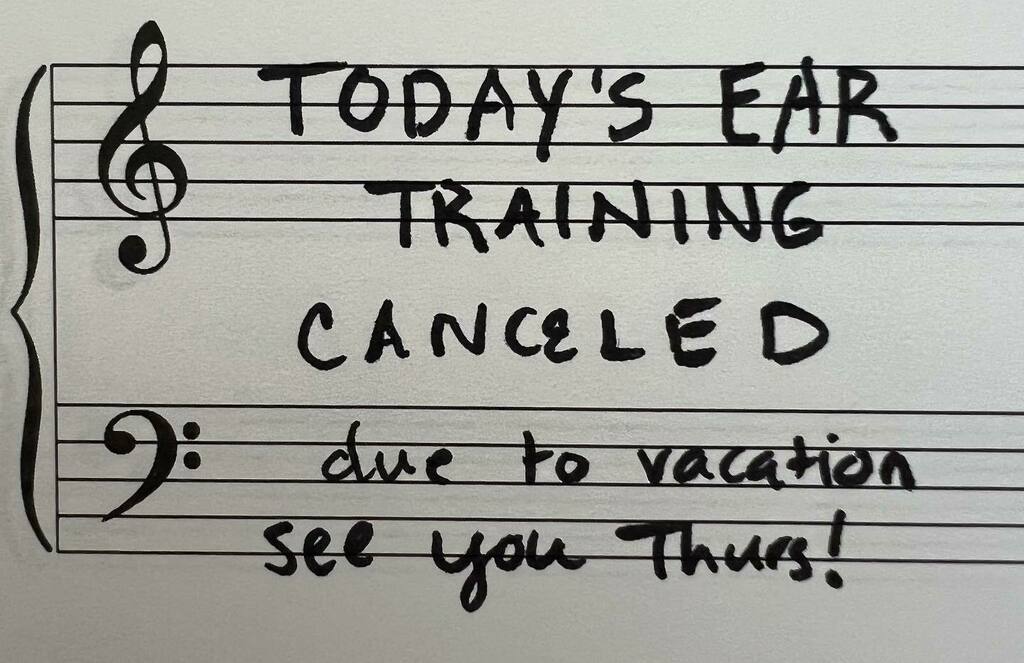 TODAY'S EAR
TRAINING
CANCELED
due to vacation
see you Thurs!